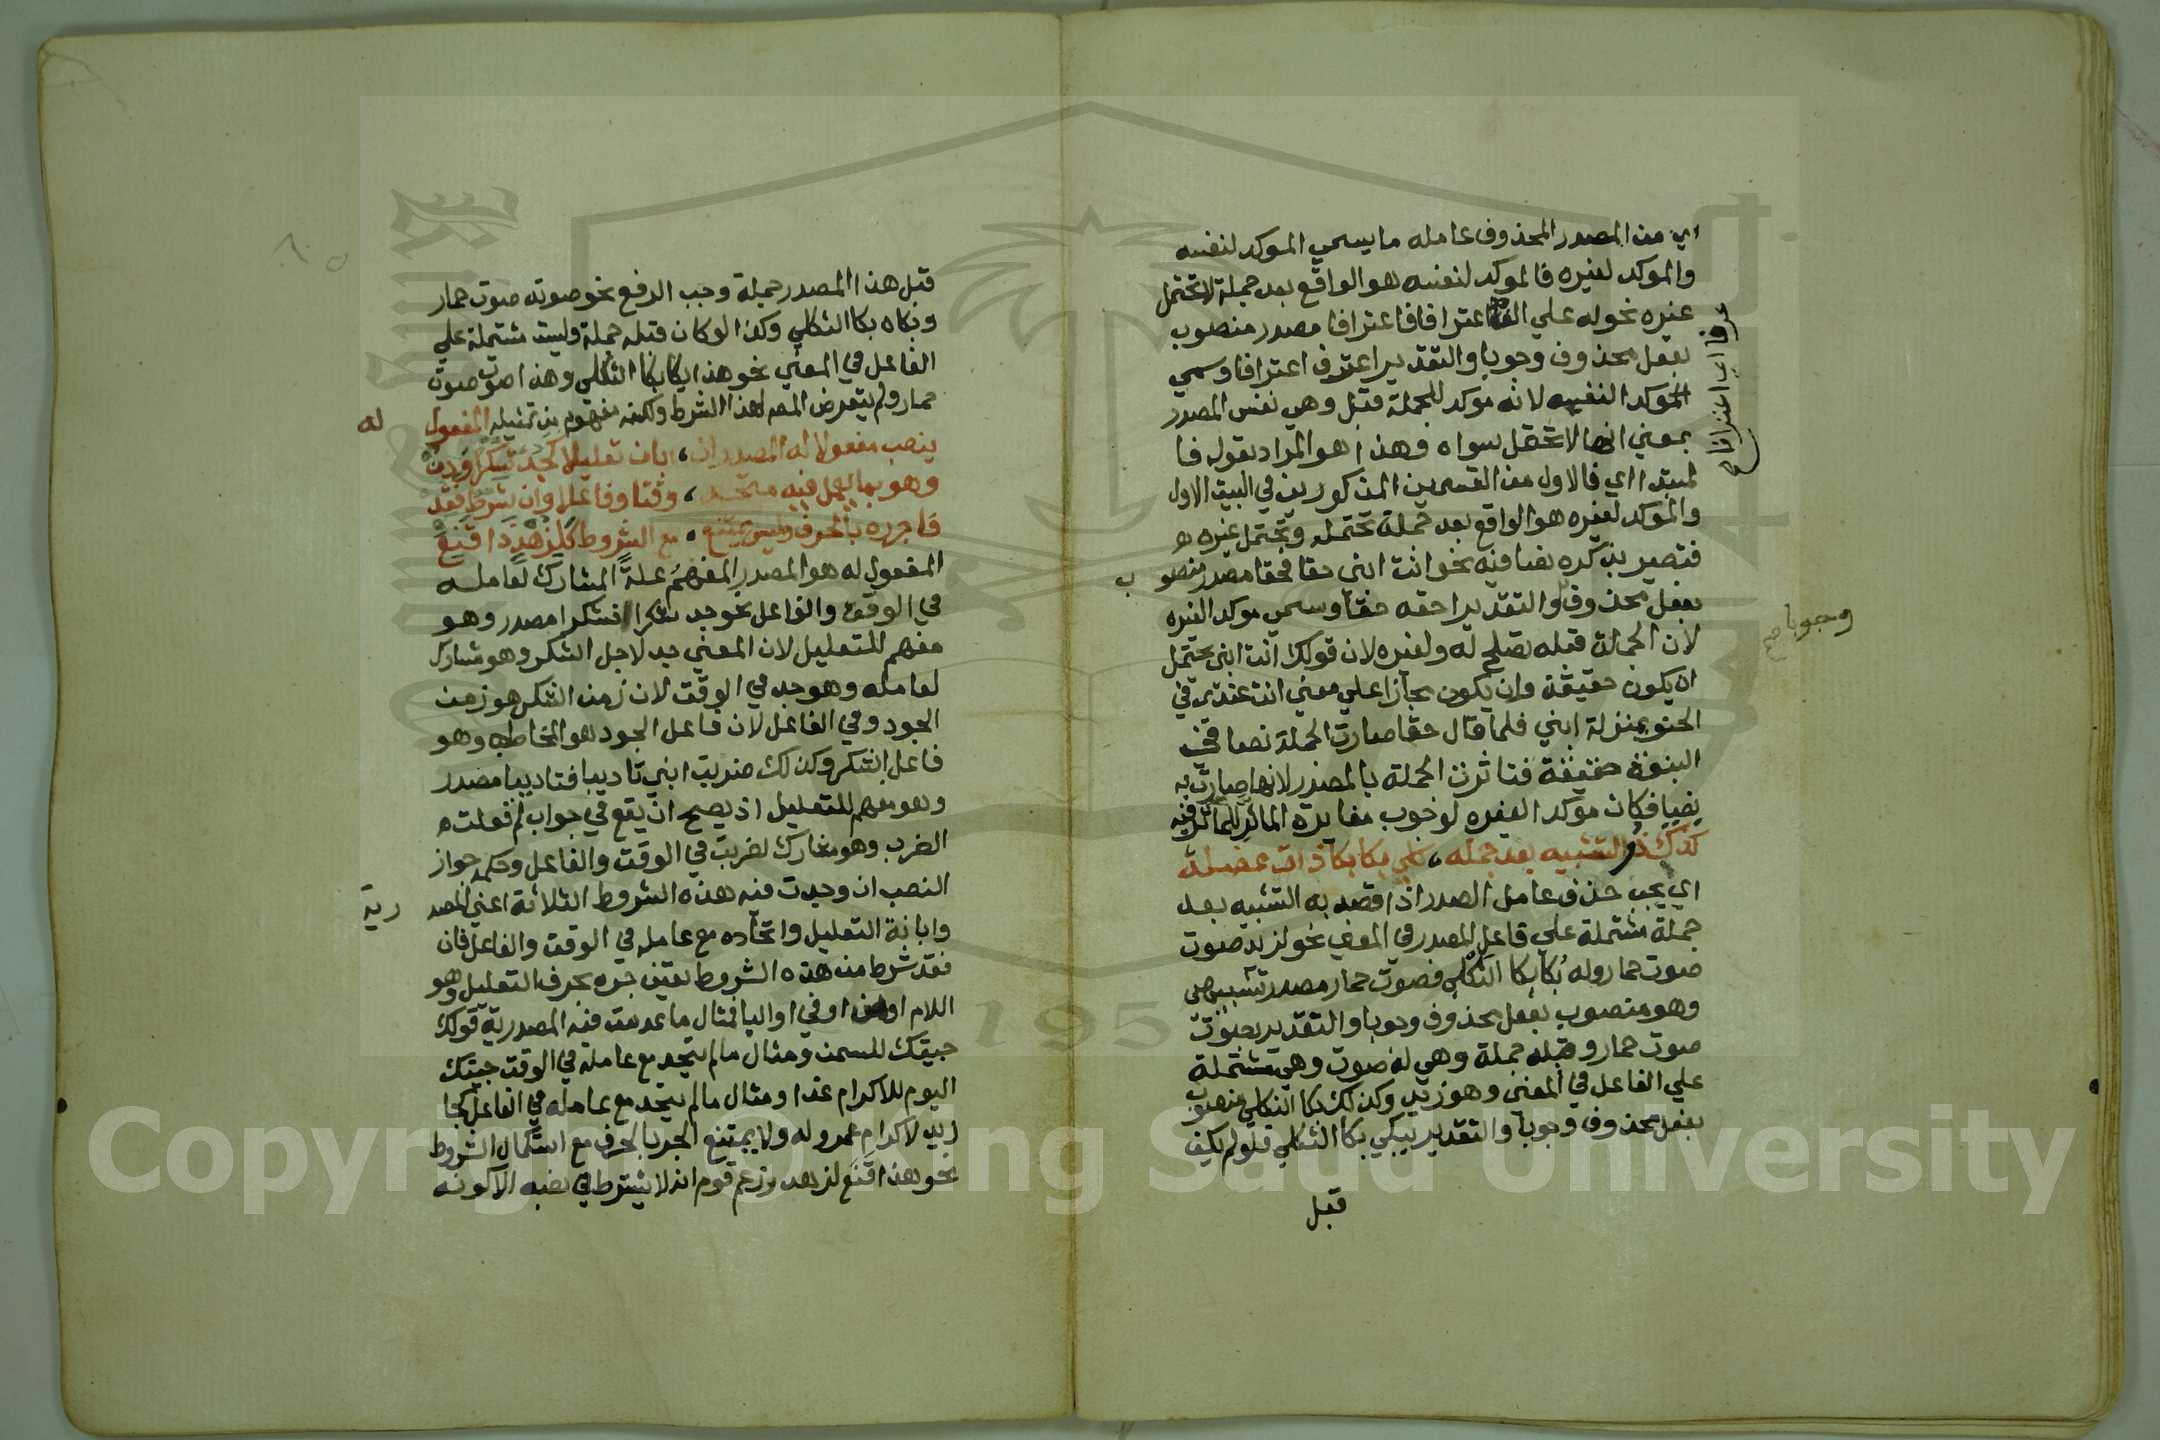 اي من المصدر المحذوف عامله ما يسمي الموكد لنفسه
والموكد لغيره فالموكد لنفسه هو الواقع بعد جملة لا تحتمل
غيره نحو له علي الف اعترافا فاعترافا مصدر منصوب
بفعل محذوف وجوبا والتقدير اعترف اعترافا وسمي
الموكد النفسه لانه موكد للجملة قبل وهي نفس المصدر
بمعني انها لا تحتمل سواه وهذا هو المراد بقوله فا
لمبتدا اي فالاول من القسمين المذكورين في البيت الاول
والموكد لغيره هو الواقع بعد جملة تحتمله وتحتمل غيره
فتصير بذكره نصا فيه نحو انت ابني حقا فحقا مصدر منصو ب
بفعل محذوف والتقدير احقه حقا وسمي موكد الغيره
لان الجملة قبله تصلح له ولغيره لان قولك انت ابني يحتمل
ان يكون حقيقة وان يكون مجازا علي معني انت عندي في
الحنو بمنزلة ابني فلما قال حقا صارت الجملة نصا في
البنوة حقيقة فتاثرت الجملة بالمصدر لانها صارت به
نصا فكان موكد الغيره لوجوب مغايرة الماثر للماثر فيه
كذاك ذو التشبيه بعد جمله ، كلي بكا بكا ذات عضلة
اي يجب حذف عامل المصدر اذا قصد به التشبيه بعد
جملة مشتملة علي فاعل المصدر في المعني نحو لزيد صوت
صوت حمار وله بكا بكا الثكلي فصوت حمار مصدر تشبيهي
وهو منصوب بفعل محذوف وجوبا والتقدير يصوت
صوت حمار وقبله جملة وهي له صوت وهي مشتملة
علي الفاعل في المعني وهو زيد وكذلك بكا الثكلي منصوب
بفعل محذوف وجوبا والتقدير يبكي بكا الثكلي فلو لم يكن
قبل
وجوبا صح
قبل هذا المصدر جملة وجب الرفع نحو صوته صوت حمار
وبكاه بكا الثكلي وكذا لو كان قبله جملة وليست مشتملة علي
الفاعل في المعني نحو هذا بكا بكا الثكلي وهذا صوت صوت
حمار ولم يتعرض المصـ لهذا الشرط ولكنه مفهوم من تمثيله المفعول له
ينصب مفعولا له المصدر ان ، ابان تعليلا كجد شكرا ودن
وهو بما يعمل فيه متحد ، وقتا وفاعلا وان شرط فقد
فاجرره بالحرف وليس يمتنع ، مع الشروط كلزهد ذا قنع
المفعول له هو المصدر المفهم علة المشارك لعامله
في الوقت والفاعل نحو جد شكرا فشكرا مصدر وهو
مفهم للتعليل لان المعني جد لاجل الشكر وهو مشارك
لعامله وهو جد في الوقت لان زمن الشكر هو زمن
الجود وفي الفاعل لان فاعل الجود هو المخاطب وهو
فاعل الشكر وكذلك ضربت ابني تاديبا فتاديبا مصدر
وهو مفهم للتعليل اذ يصح ان يقع في جواب لم فعلت
الضرب وهو مشارك لضربت في الوقت والفاعل وحكمه جواز
النصب ان وجدت فيه هذه الشروط الثلاثة اعني المصد رية
وابانة التعليل واتحاده مع عامله في الوقت والفاعل فان
فقد شرط من هذه الشروط تعين جره بحرف التعليل وهو
اللام او من او في او البا فمثال ما عدمت فيه المصدرية قولك
جيتك للسمن ومثال ما لم يتحد مع عامله في الوقت جيتك
اليوم للاكرام غدا ومثال ما لم يتحد مع عامله في الفاعل جا
زيد لاكرام عمرو له ولا يمتنع الجر بالحرف مع استكمال الشروط
نحو هذا اقنع لزهد وزعم قوم انه لا يشترط في نصبه الا كونه
Copyright © King Saud University
195